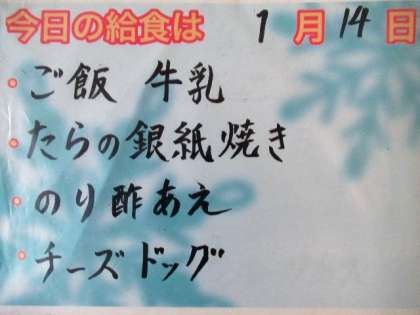 今日の給食は 1月14日
・ご飯 牛乳
・たらの銀紙焼き
・のり酢あえ
・チーズドッグ